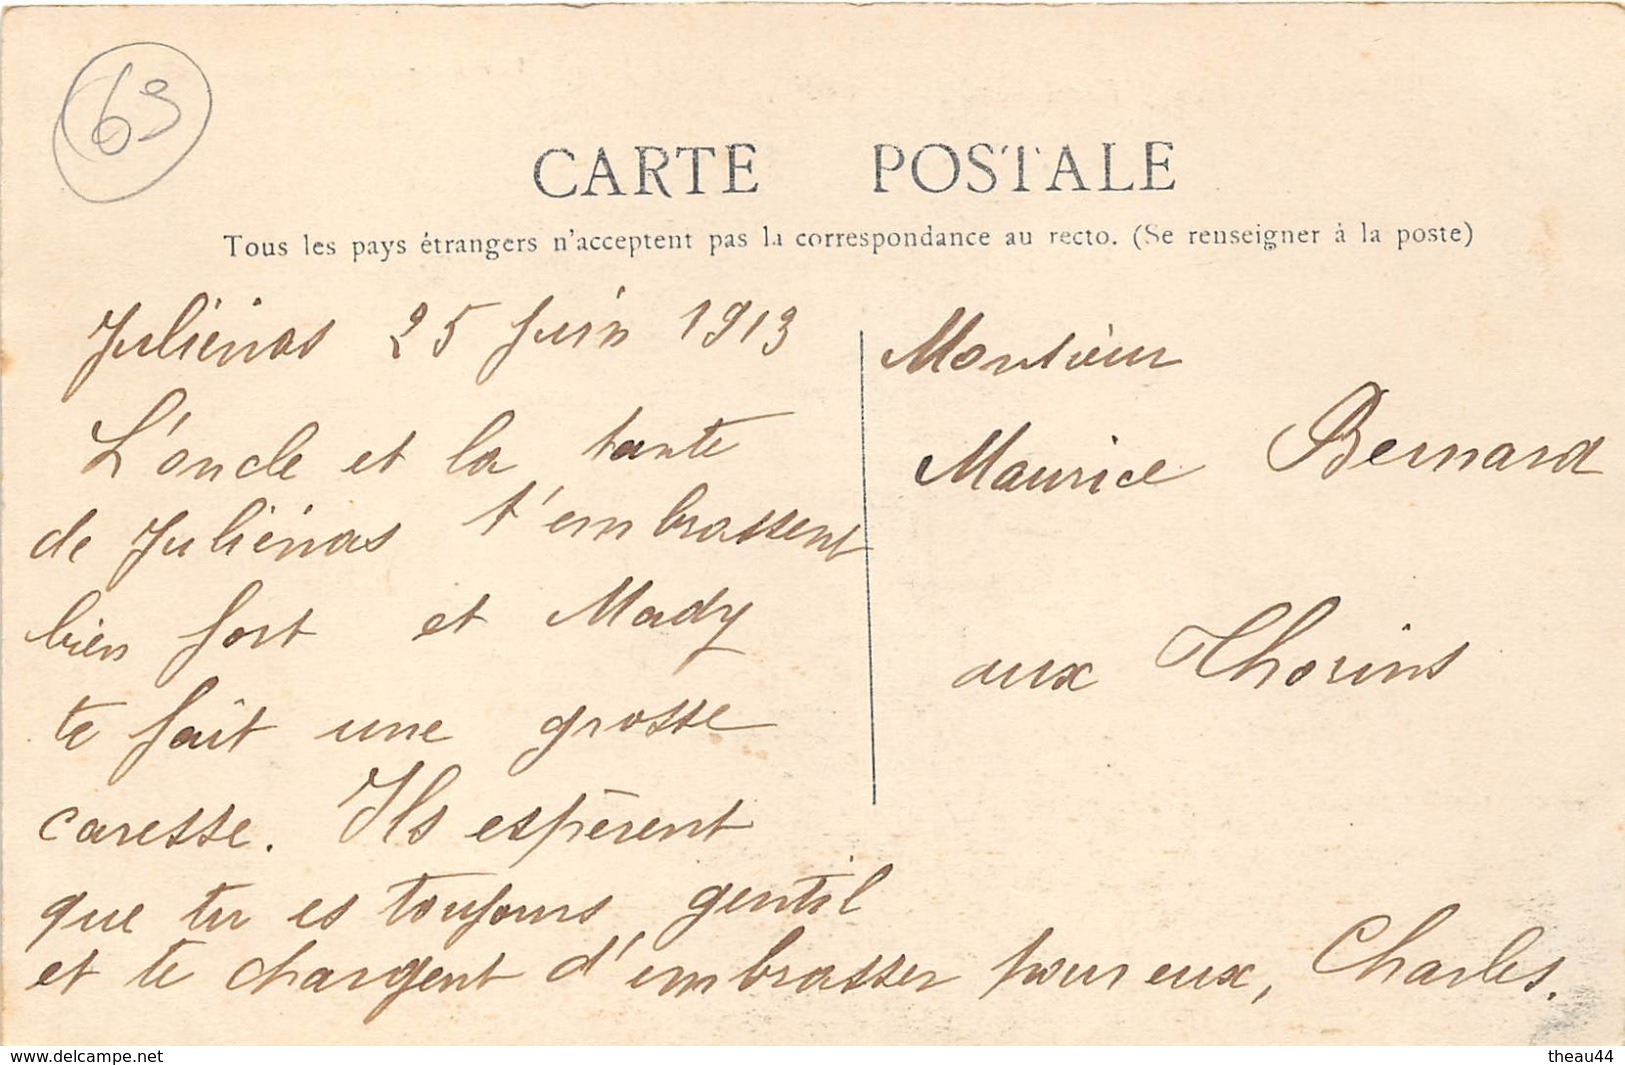 69
CARTE POSTALE
Tous les pays étrangers n'acceptent pas la correspondance au recto. (Se renseigner à la poste)
Juliénas 25 Juin 1913
L'oncle et la tante
de Juliénas t'embrassent
bien fort et Mady
te fait une grosse
caresse. Ils espèrent
que tu es toujours gentil
et te chargent d'embrasser pour eux, Charles.
Monsieur
Maurice Bernard
aux Thorins
www.delcampe.net
theau44